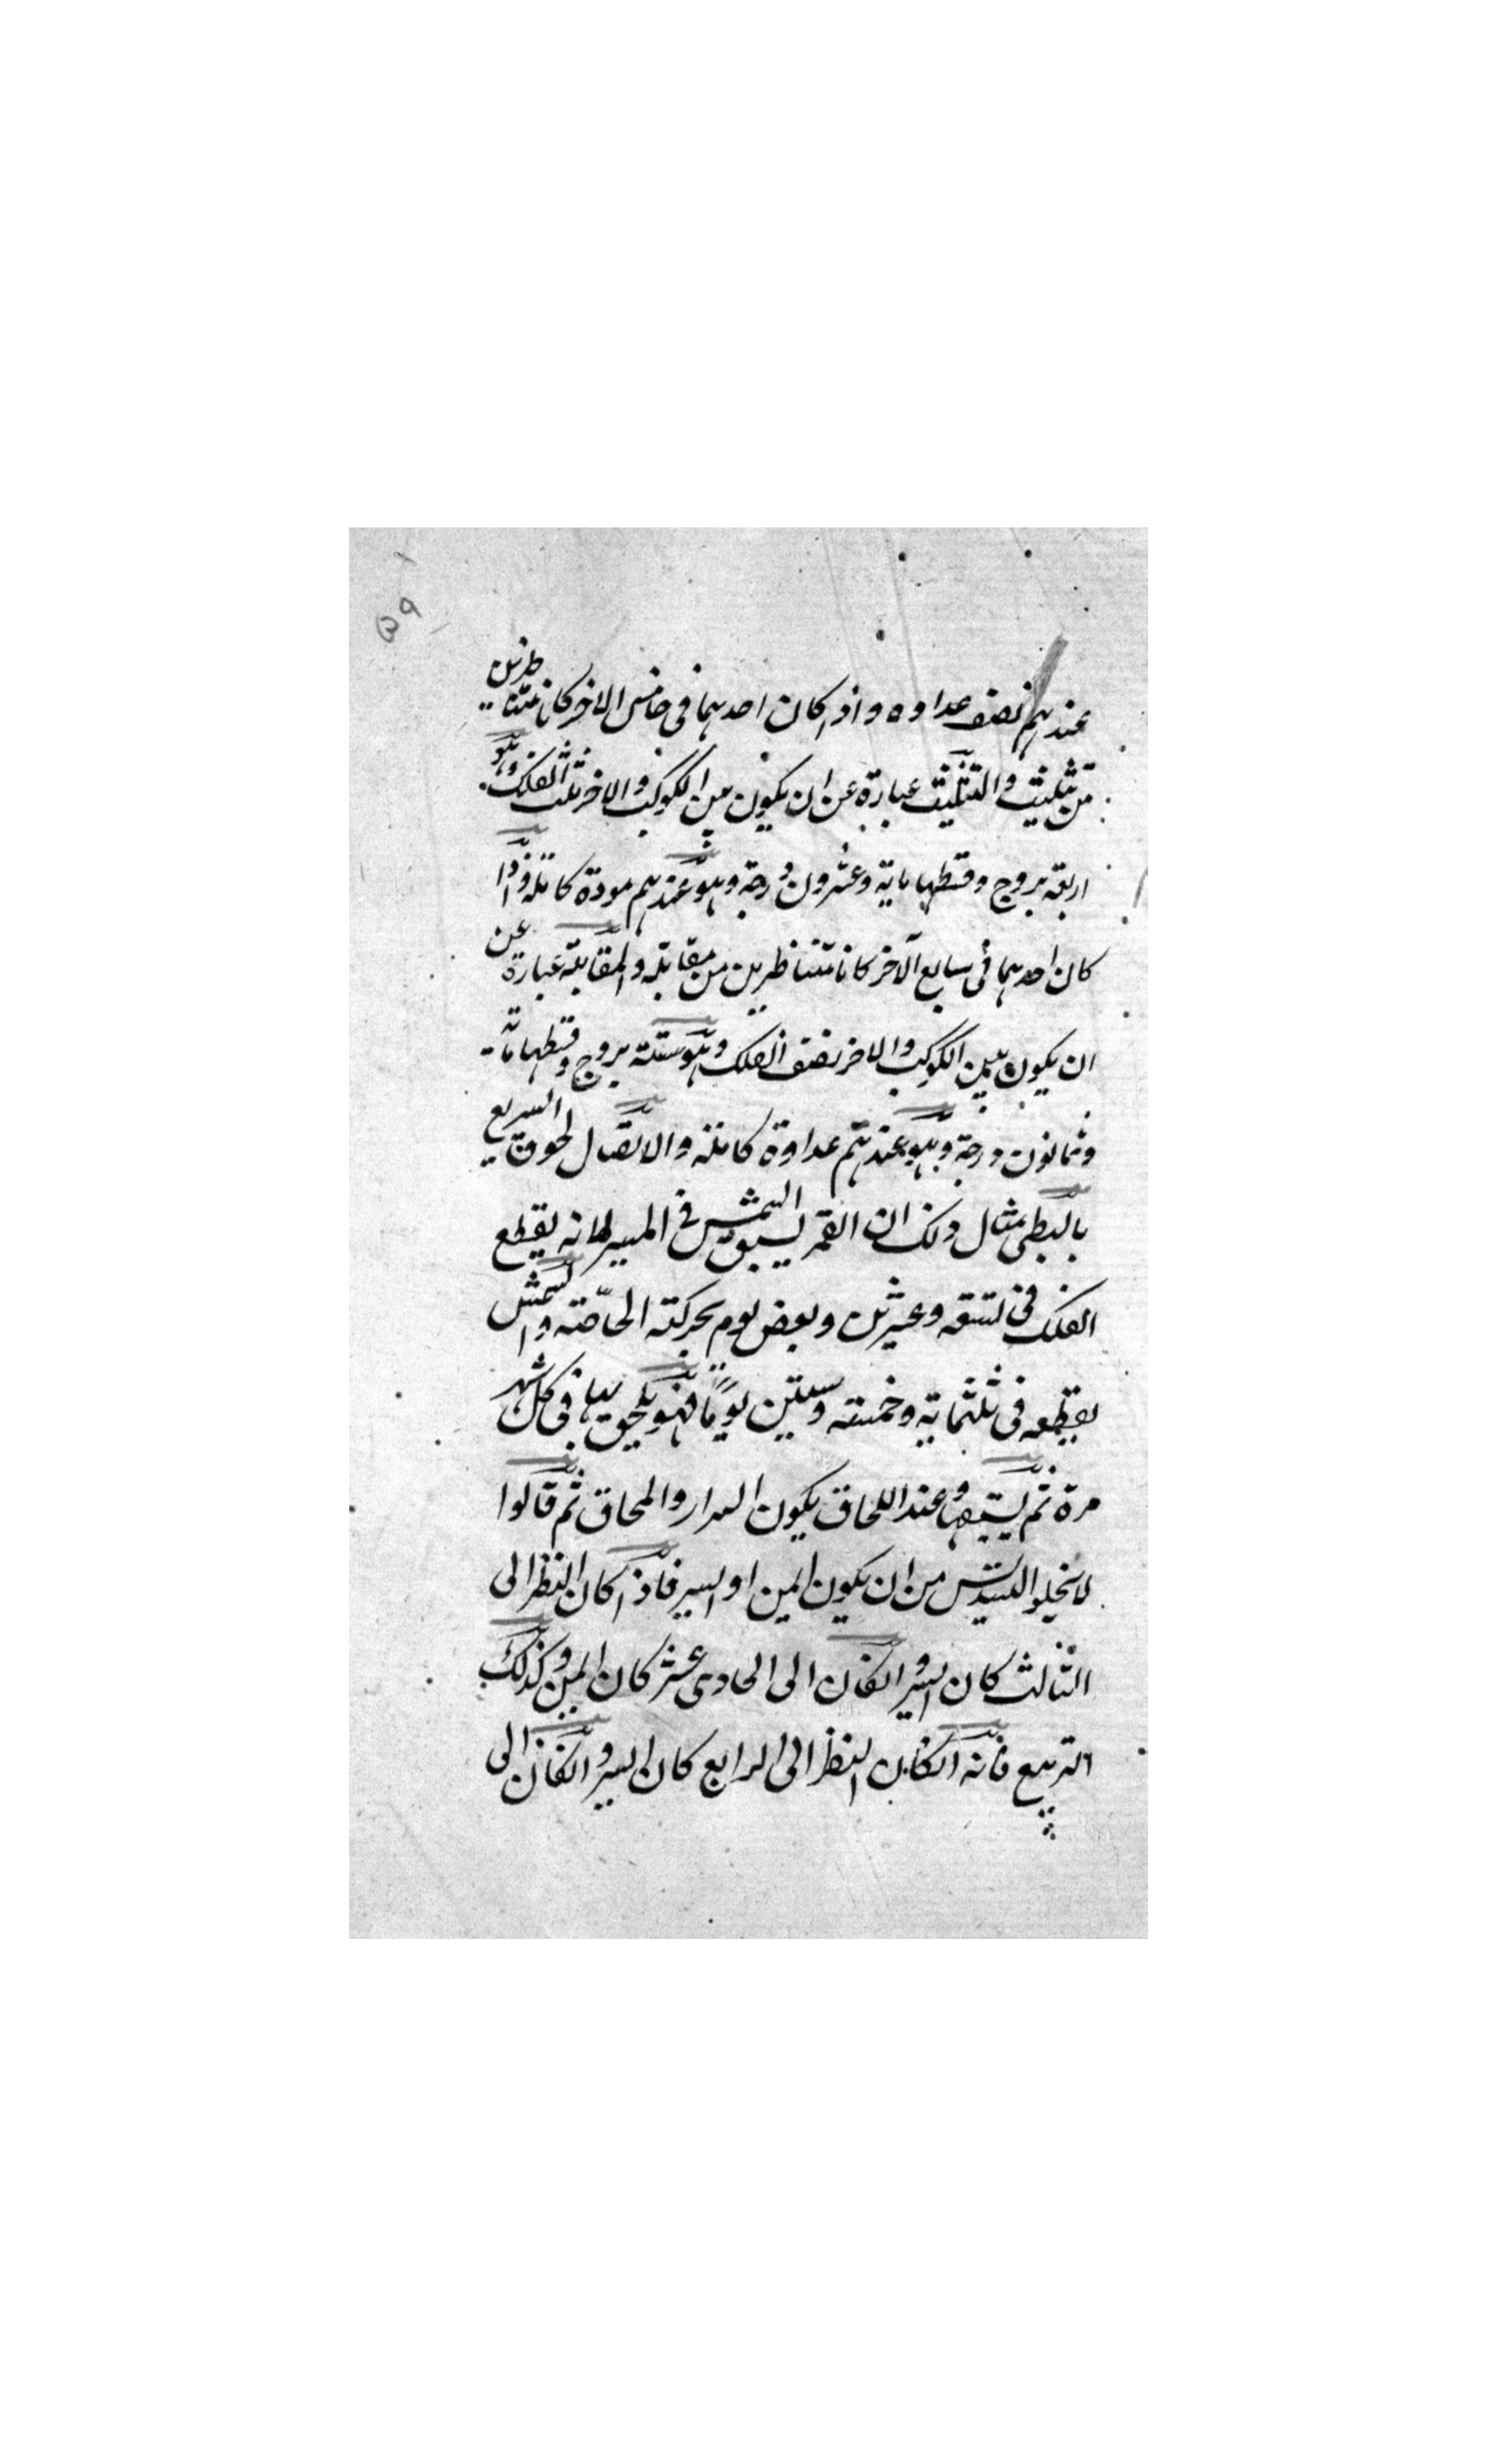 ٥٩
عندهم نصف عداوه واذا كان احدهما فى خامس الاخر كانا متناظرين
من تثليث والتثليث عبارة عن ان يكون بين الكوكب والاخر ثلث الفلك وهو
اربعة بروج وقسطها ماية وعشرون درجة وهو عندهم مودة كاملة واذا
كان احدهما فى سابع الآخر كانا متناظرين من مقابلة والمقابلة عبارة عن
ان يكون بين الكوكب والاخر نصف الفلك وهو ستة بروج وقسطها ماية
وثمانون درجة وهو عندهم عداوة كاملة والاتصال لحوق السريع
بالبطى مثال ذلك ان القمر يسبق الشمس فى المسير لانه يقطع
الفلك فى تسعة وعشرين وبعض يوم بحركته الخاصّة والشمس
يقطعه فى ثلثماية وخمسة وستين يومًا فهو يلحق بها فى كل شهر
مرة ثم يسبقها وعند اللحاق يكون السرار والمحاق ثم قالوا
لا يخلو التسديس من ان يكون ايمن او ايسر فاذا كان النظر الى
الثالث كان ايسر وان كان الى الحادى عشر كان ايمن وكذلك
التربيع فانه ان كان النظر الى الرابع كان ايسر وان كان الى